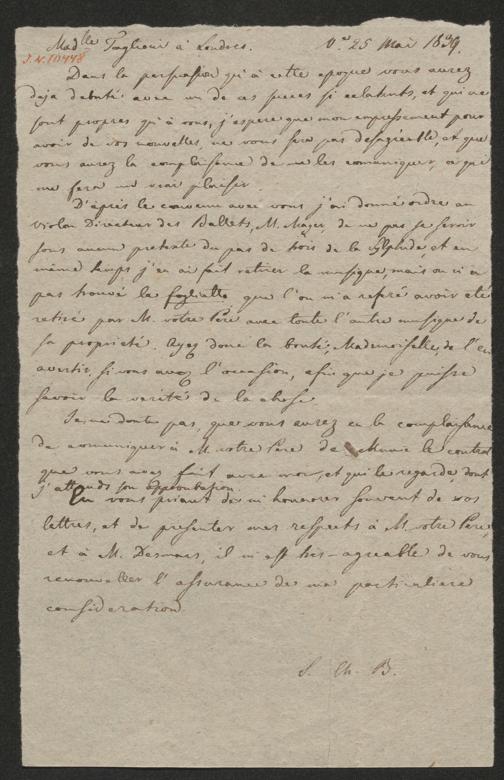 Madlle Taglioni à Londres. V.e 25 Mai 1839.
J.N.10448
Dans la persuasion qu'à cette epoque vous aurez
deja debuté avec un de ces pieces si eclatants, et qui ne
sont propres qu'à vous, j'espere que mon empressement pour
avoir de vos nouvelles, ne vous sera pas désagréable, et que
vous aurez la complaisance de me les comuniquer, ce que
me fera un vrai plaisir.
D'après le convenu avec vous j'ai donné ordre au
violon Directeur des Ballets, M. Mayer, de ne pas se servir
sous aucun pretexte du pas de trois de la Sylphide, et en
même temps j'en ai fait retirer la musique, mais on n'a
pas trouvé la fogliette, que l'on m'a referé avoir été
retiré par M. votre Père avec toute l'autre musique de
sa proprieté. Ayez donc la bonté, Mademoiselle, de l'en
avertir, si vous avez l'occasion, afin que je puisse
savoir la verité de la chose.
Je ne doute pas, que vous aurez eu la complaisance
de comuniquer à M. votre Père de le contrat
que vous avez fait avec moi, et qui le regarde, dont
j'attends son approbation.
En vous priant de m'honorer souvent de vos
lettres, et de presenter mes respects à M. votre Père,
et à M. Desmars, il m'est très-agreable de vous
renouveller l'assurance de ma particuliere
consideration.
S. Ch. B.